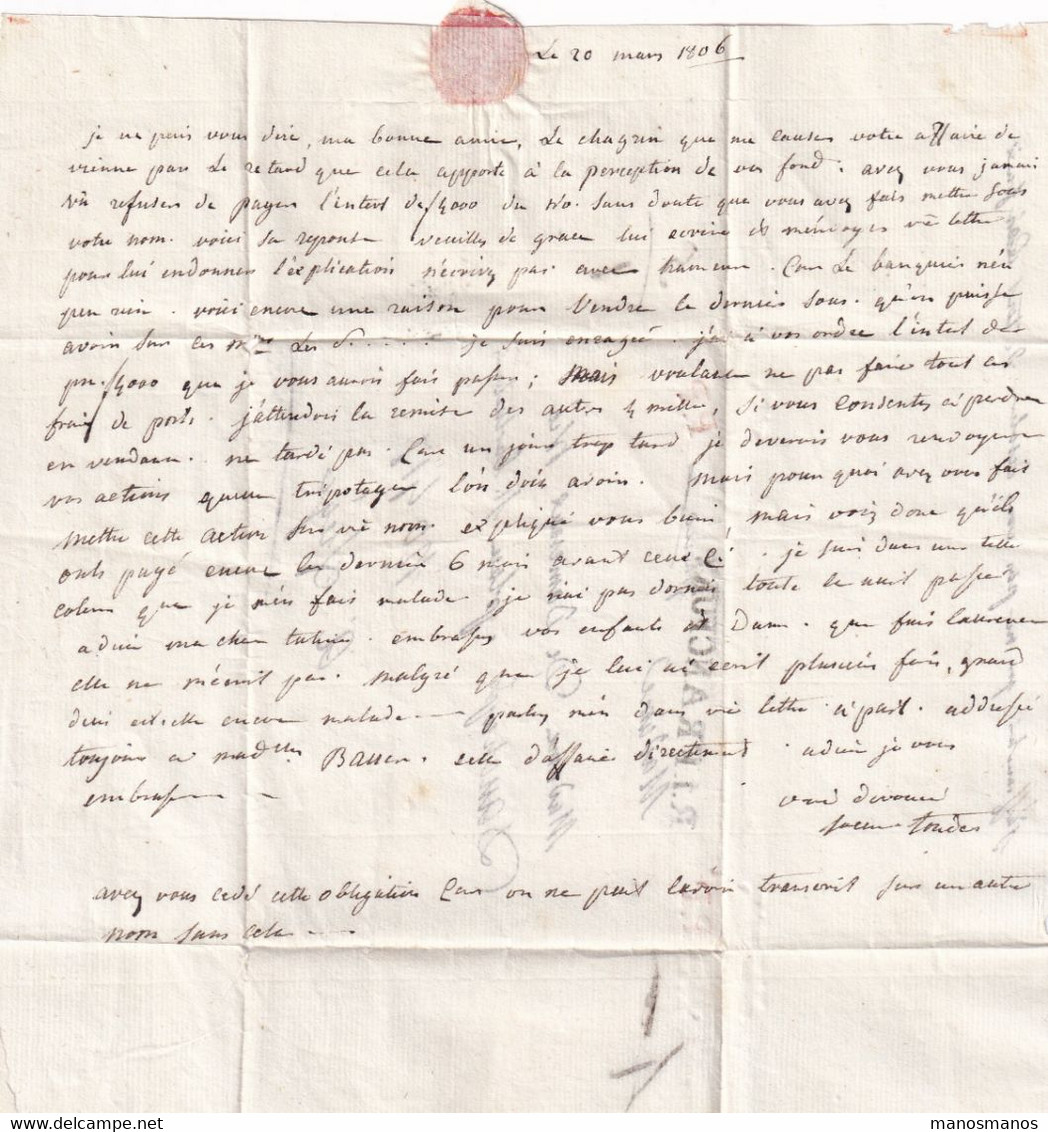 Le 20 mars 1806
je ne puis vous dire, ma bonne amie, Le chagrin que me causes votre affaire de
vienne par Le retard que cela apporte à la perception de vos fond. avez vous jamais
vû refuser de payer l'interet de f4000 du no. sans doute que vous avez fais mettre sous
votre nom. voici sa reponse veuilles de grace lui ecrire é ménéages vē lettre
pour lui endonner l'explication n'écrivez pas avec humeur. Car Le banquier n'en
peu rien. voici encore une raison pour Vendre le dernier sous. qu'on puisse
avoir sur ces Les d..... je suis enragé. j'ai à vos ordre l'intet des
pr. f4000 que je vous aurois fais passer; Mais voulant ne pas faire tout ces
frais de ports. j'attendois la remise des autres 4 mille, si vous Consentes à perdre
en vendant. ne tardé pas. Car un jour trop tard je deverois vous renvoyer
vos actions queue tripotage l'on doit avoir. Mais pour quoi avez vous fais
mettre cette action sur vē nom. expliqué vous bien, mais voiez donc qu'ils
onts payé encore les derniers 6 mois avant ceux Ci. je suis dans une telle
colere que je m'en fais malade je n'ai pas dormi toute la nuit passée
adieu ma cher embrassez vos enfants et Dam. que fais
elle ne m'écrit pas. malgré que je lui ai ecrit plusieurs fois,
est elle encore malade — parlez m'en dans vē lettre à part. addressé
toujours a mad.lles Bassen. cette d'affaires directement. adieu je vous
embrasse — —
votre devouée
soeur
avez vous cedé cette obligation Car on ne peut lavoir transcrit sur un autre
nom sans cela — —
manosmanos